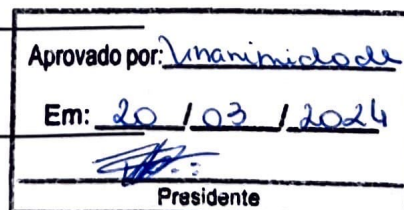 Aprovado por: Unanimidade
Em: 20 / 03 / 2024
Presidente